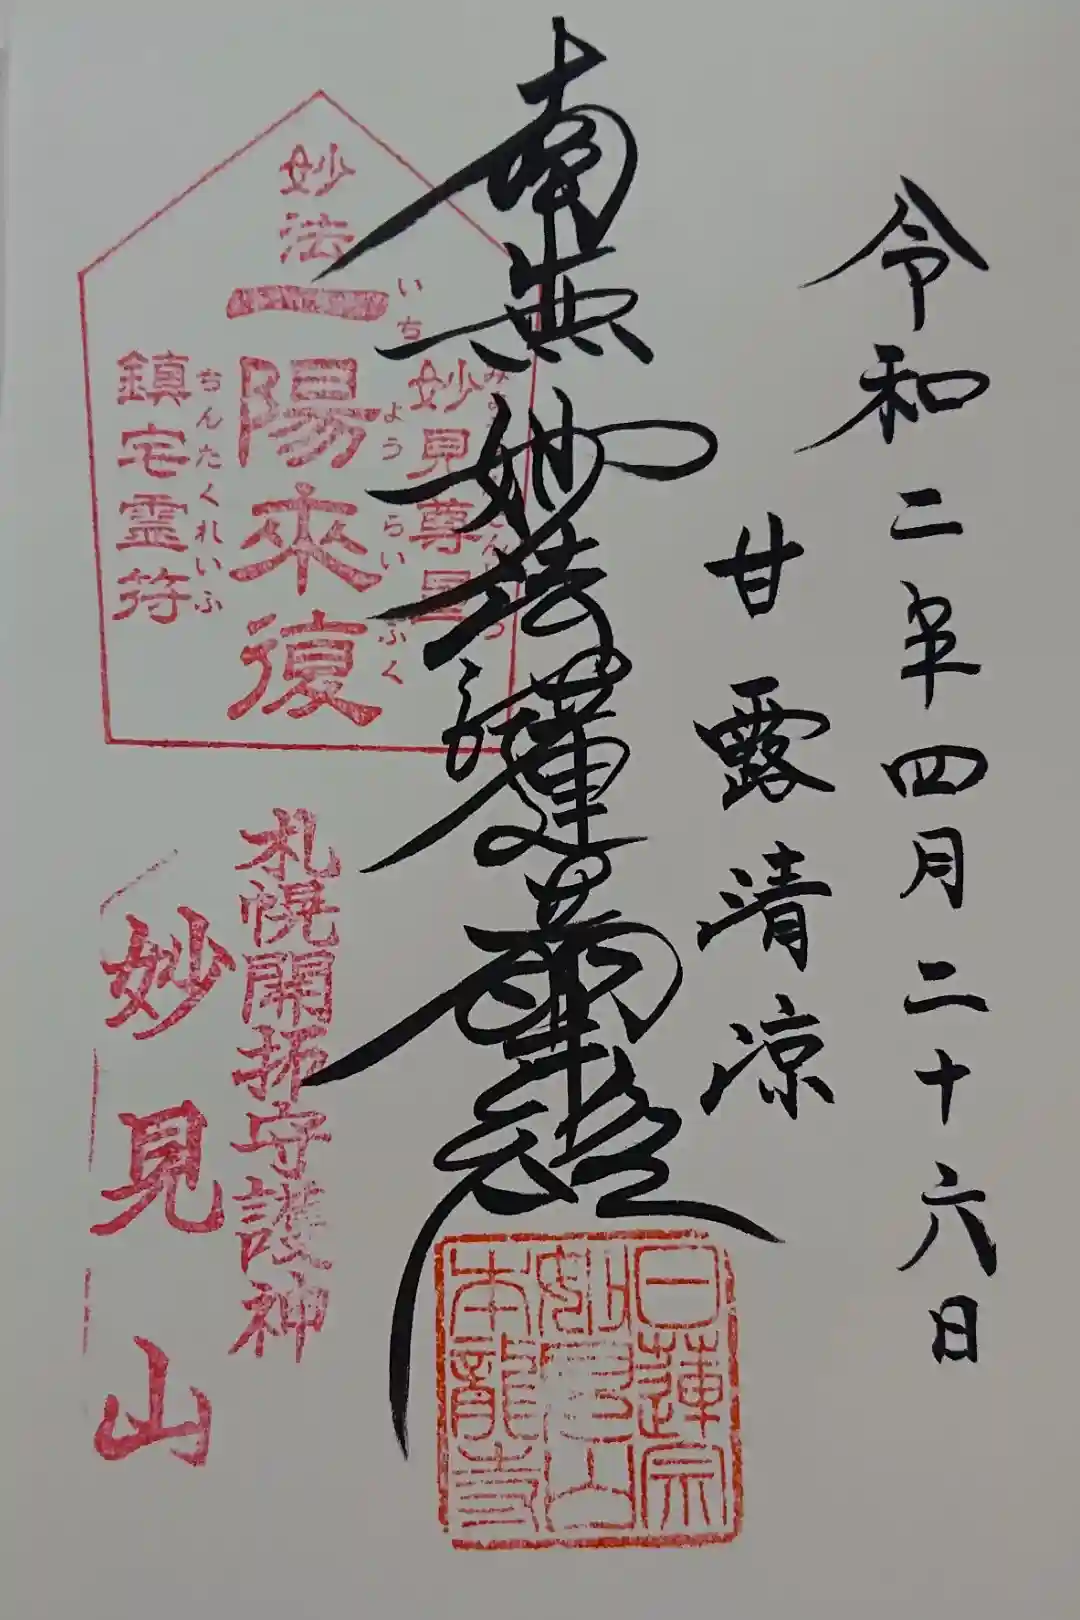 令和二年四月二十六日
甘露清凉
南無妙法蓮華経
日蓮宗
妙見山
本龍寺
妙法
一陽来復
いちようらいふく
妙見尊星
鎮宅霊符
ちんたくれいふ
札幌開拓守護神
妙見山